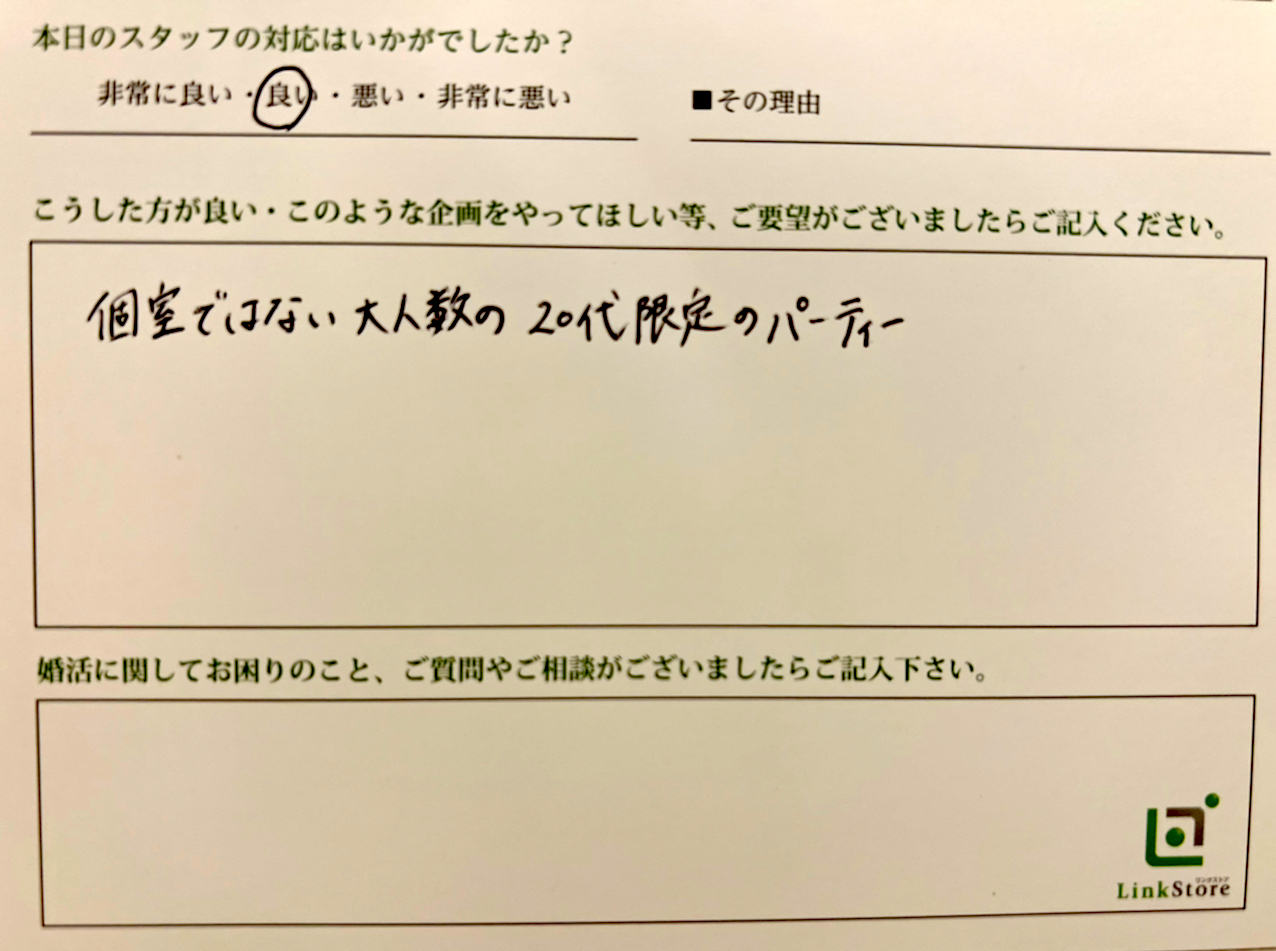 本日のスタッフの対応はいかがでしたか？
非常に良い・良い・悪い・非常に悪い
■その理由
こうした方が良い・このような企画をやってほしい等、ご要望がございましたらご記入ください。
個室ではない大人数の20代限定のパーティー
婚活に関してお困りのこと、ご質問やご相談がございましたらご記入下さい。
リンクストア
LinkStore